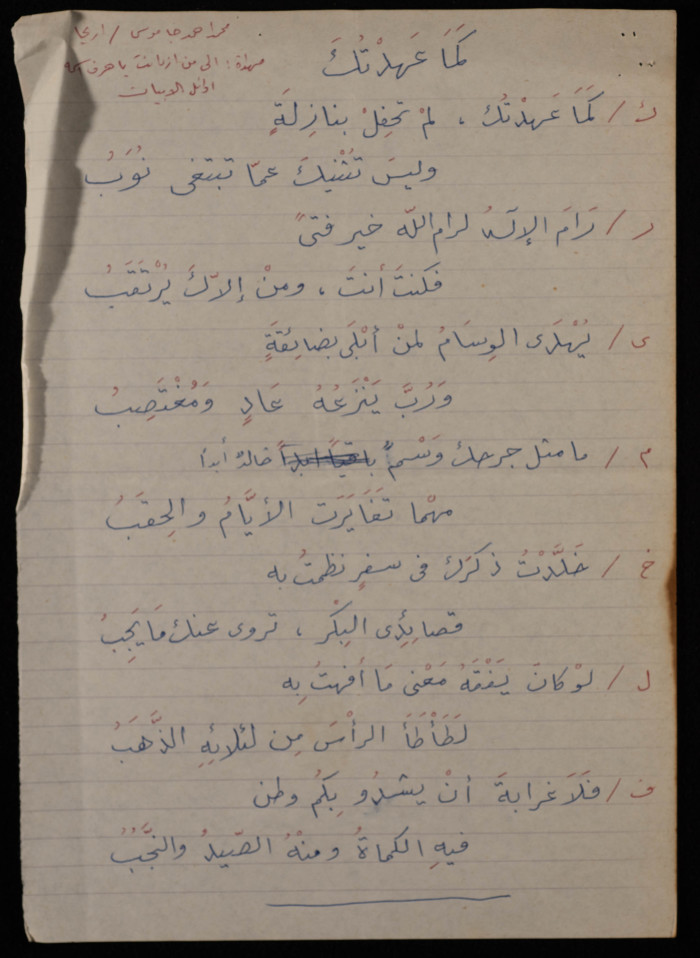 محمد احمد جاموس / اريحا
مهداة: الى من ازدانت باحرف اسمه
اوائل الابيات
كَمَا عَهِدْتُكَ
ك / كَمَا عَهِدْتُك ، لمْ تحفِلْ بنازِلَةٍ
وليسَ تَثْنيكَ عمّا تبتغى نُوَبُ
ر / رَامَ الإلَهُ لرام الله خير فتىً
فكنتَ أنتَ ، ومنْ إلاّكَ يُرْتَقَبُ
ى / يُهْدَى الوِسَامُ لمنْ أبْلَى بضائِقَةٍ
وَرُبَّ يَنْزَعُهُ عَادٍ وَمُغْتَصِبُ
م / ما مثل جرحك وَسْمٌ خالدٌ أبدا
مهْما تَغَايَرَت الأيَّامُ والحِقبُ
خ / خَلَّدْتُ ذكرَك فى سفرٍ نظمتُ به
قصائِدِى البِكْر ، تروى عنك مَا يَجِبُ
ل / لوْ كانَ يَفْقَهُ مَعْنى مَا أفهتُ بِه
لَطَأْطَأَ الرأْسَ مِن لئلائِهِ الذَّهَبُ
ف / فَلاَ غرابةَ أنْ يشدُو بِكُم وطن
فيهِ الكماةُ ومنْهُ الصّيدُ والنُّجُبُ